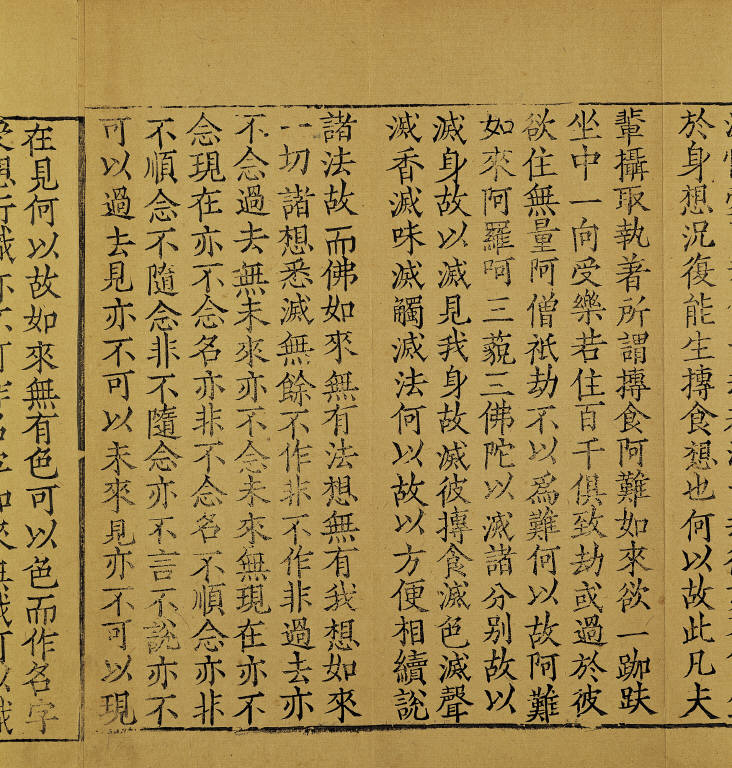 於身想況復能生摶食想也何以故此凡夫
輩攝取執著所謂摶食阿難如來欲一跏趺
坐中一向受樂若住百千俱致劫或過於彼
欲住無量阿僧祇劫不以爲難何以故阿難
如來阿羅呵三藐三佛陀以滅諸分別故以
滅身故以滅見我身故滅彼摶食滅色滅聲
滅香滅味滅觸滅法何以故以方便相續說
諸法故而佛如來無有法想無有我想如來
一切諸想悉滅無餘不作非不作非過去亦
不念過去無未來亦不念未來無現在亦不
念現在亦不念名亦非不念名不順念亦非
不順念不隨念非不隨念亦不言不說亦不
可以過去見亦不可以未來見亦不可以現
在見何以故如來無有色可以色而作名字